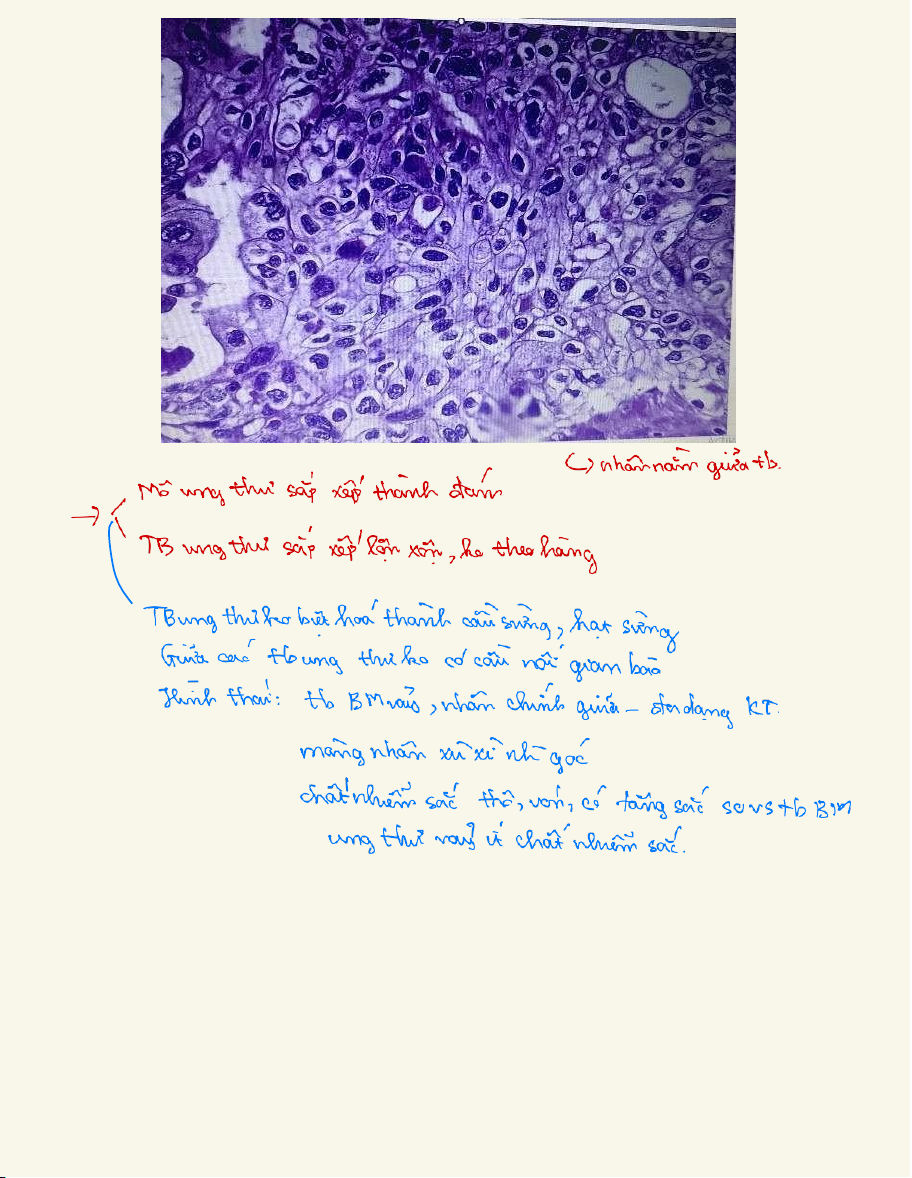 ↳ nhân nằm giữa tb.
Mô ung thư sắp xếp thành đám
→ TB ung thư sắp xếp lộn xộn, ko theo hàng
TB ung thư ko biệt hoá thành cầu sừng, hạt sừng
Giữa các tb ung thư ko có cầu nối gian bào
Hình thái: tb BM vảy, nhân chính giữa - đa dạng KT.
màng nhân xù xì nh góc
chất nhiễm sắc thô, vón, có tăng sắc so vs tb BM
ung thư vảy ít chất nhiễm sắc.